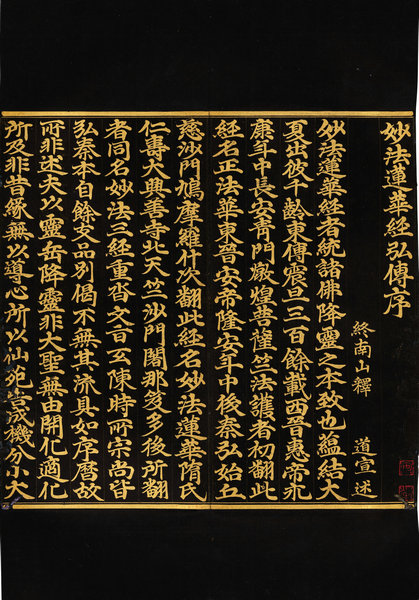 妙法蓮華經弘傳序
終南山釋 道宣述
妙法蓮華經者統諸佛降靈之本致也蘊結大
夏出彼千齡東傳震旦三百餘載西晉惠帝永
康年中長安青門燉煌菩薩竺法護者初翻此
經名正法華東晉安帝隆安年中後秦弘始五
慈沙門鳩摩羅什次翻此經名妙法蓮華隋氏
仁壽大興善寺北天竺沙門闍那笈多後所翻
者同名妙法三經重沓文旨互陳時所宗尚皆
弘秦本自餘支品別偈不無其流具如序曆故
所非述夫以靈岳降靈非大聖無由開化適化
所及非昔緣無以導心所以仙苑告成機分小大